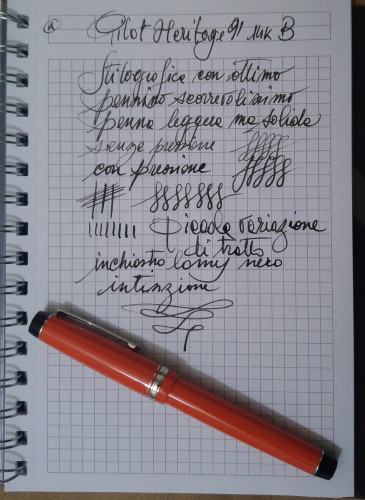 Pilot Heritage 91 nik B
Stilografica con ottimo
pennino scorrevolissimo
penna leggera ma solida
senza pressione
con pressione
Piccola variazione
di tratto
inchiostro lamy nero
intinzione